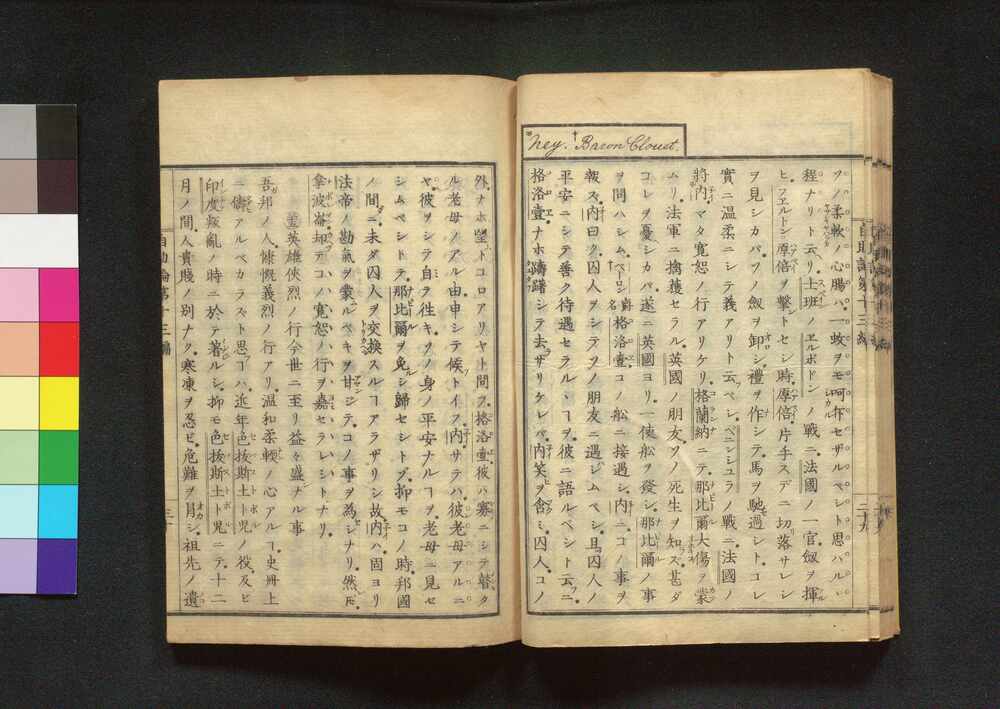 *Ney. †Baron Clouet.
フノ柔軟ノ心腸ハ一蚊ヲモ呵斥セザルベシト思ハルヽ
程ナリト云リ土班ノヱルボドンノ戰ニ法國ノ一官劔ヲ揮
ヒヱルトン厚倍ヲ擊ントセシ時厚倍片手スデニ切落サレシ
ヲ見シカバソノ劔ヲ卸シ禮ヲ作シテ馬ヲ馳過シトコレ
實ニ温柔ニシテ義アリト云フベシペニンシュラノ戰ニ法國ノ
將内マタ寬恕ノ行アリケリ格蘭納ニテ那比爾大傷ヲ蒙
ムリ法軍ニ擒獲セラル英國ノ朋友ソノ死生ヲ知ズ甚ダ
コレヲ憂シカバ遂ニ英國ヨリ一使船ヲ發シ那比爾ノ事
ヲ問ハシムバロン爵名格洛壹コノ船ニ接過シ内ニコノ事ヲ
報ズ内曰ク囚人ヲシテソノ朋友ニ遇ジムベシ且囚人ノ
平安ニシテ善ク待遇セラルヽヿヲ彼ニ語ルベシト云フニ
格洛壹ナホ躊躇シテ去ザリケレバ内笑ヲ含ミ囚人コノ
外ナホ望トコロアリヤト問フ格洛壹彼ハ寡ニシテ瞽タ
ル老母ノアル由申シテ候トイフ内サテハ彼老母アルニ
ヤ彼ヲシテ自ラ往キソノ身ノ平安ナルヿヲ老母ニ見セ
シムベシトテ那比爾ヲ免シ歸セシトゾ抑モコノ時邦國
ノ間ニ未ダ囚人ヲ交換スルヿアラザリシ故内ハ固ヨリ
法帝ノ勘氣ヲ蒙ルベキヲ甘ンジテコノ事ヲ為シナリ然𪜈
拿波崙却テコノ寬恕ノ行ヲ嘉セラレシトナリ
英雄俠烈ノ行今世ニ至リ益々盛ナル事
吾邦ノ人慷慨義烈ノ行アリ温和柔輭ノ心アルヿ史冊上
ニ儔アルベカラズト思フハ近年色拔斯土ト児ノ役及ビ
印度叛亂ノ時ニ於テ著ルシ抑モ色拔斯土ト児ニテ十二
月ノ間人貴賤ノ別ナク寒凍ヲ忍ビ危難ヲ冐シ祖先ノ遺
自助論第十三編